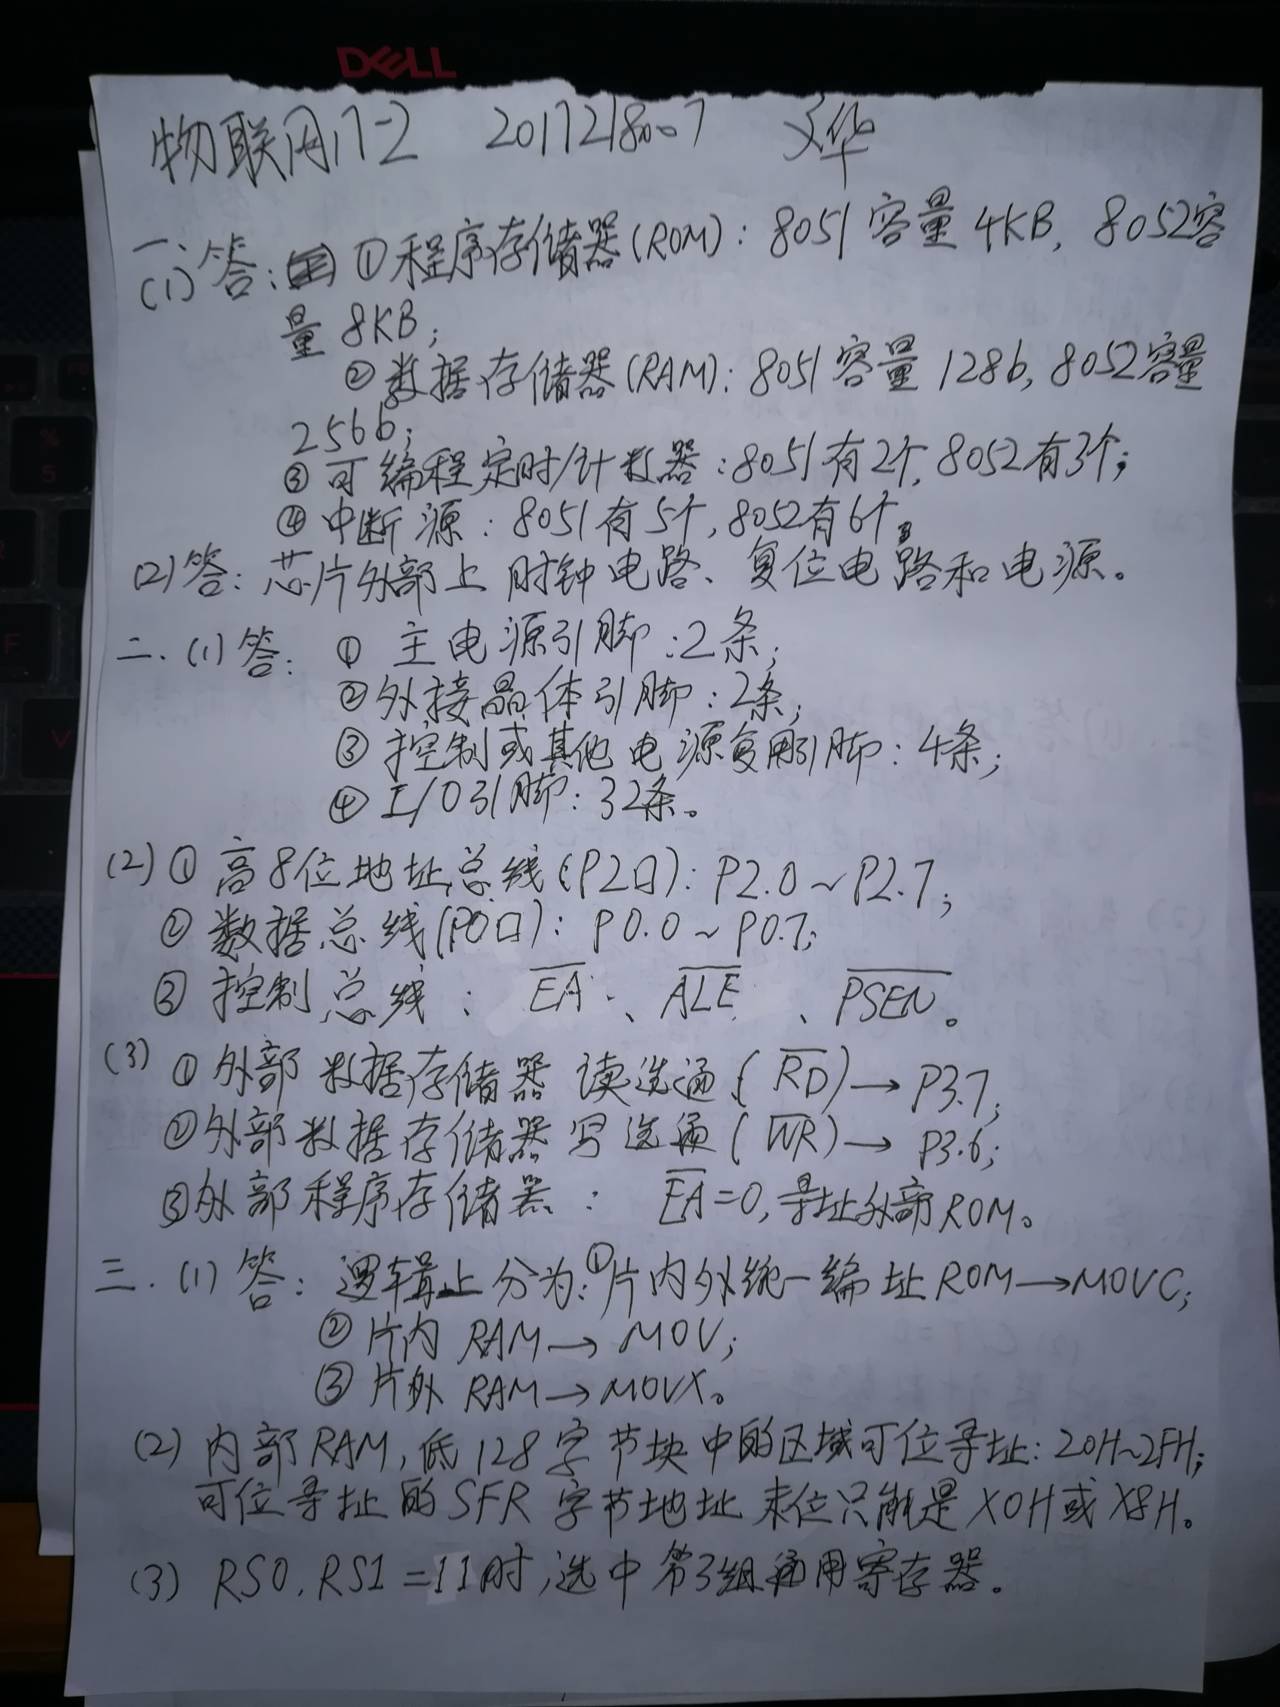 DELL
物联网17-2 2017218007 文华
一、
(1)答: ①程序存储器(ROM): 8051 容量 4KB, 8052容
量 8KB;
②数据存储器(RAM): 8051 容量 128b, 8052容量
256b;
③可编程定时/计数器:8051有2个,8052有3个;
④中断源: 8051有5个,8052有6个。
(2)答: 芯片外部上时钟电路、复位电路和电源。
二.(1)答: ① 主电源引脚:2条;
②外接晶体引脚: 2条;
③控制或其他电源复用引脚: 4条;
④I/O引脚: 32条。
(2)① 高8位地址总线(P2口): P2.0~P2.7;
② 数据总线(P0口): P0.0~P0.7;
③ 控制总线: E̅A̅、A̅L̅E̅、P̅S̅E̅N̅。
(3) ①外部数据存储器 读选通(R̅D̅)→P3.7;
②外部数据存储器写选通(W̅R̅)→P3.6;
③外部程序存储器: E̅A̅=0,寻址外部ROM。
三.(1)答: 逻辑上分为:①片内外统一编址ROM→MOVC;
② 片内 RAM→MOV;
③ 片外 RAM→MOVX。
(2) 内部RAM,低128字节块中的区域可位寻址:20H~2FH;
可位寻址的SFR字节地址末位只能是X0H或X8H。
(3) RS0.RS1=11时,选中第3组通用寄存器。